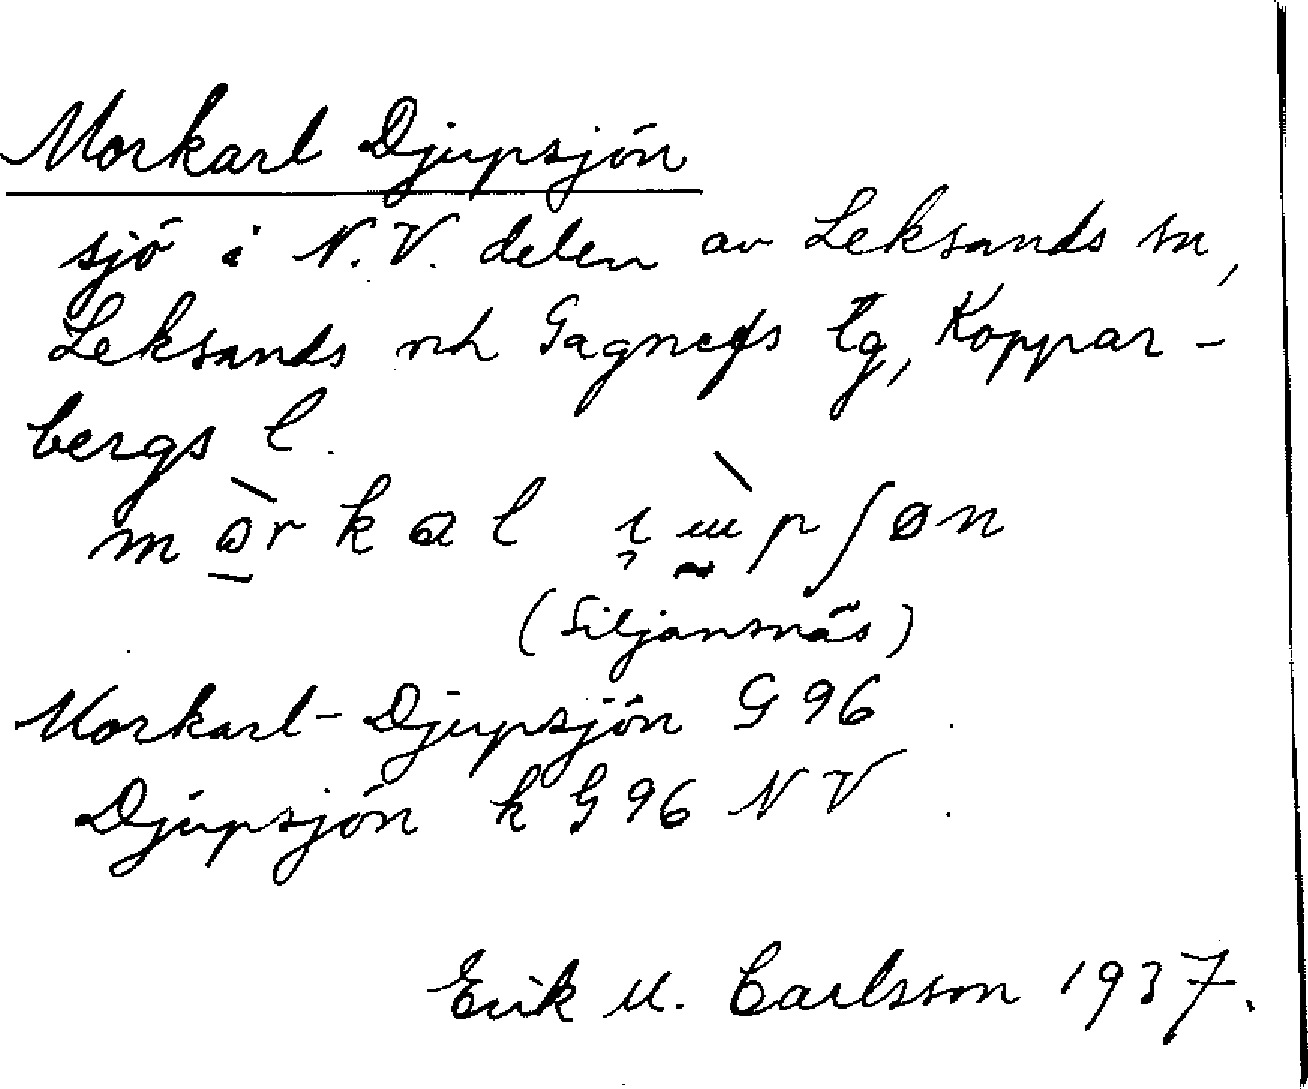 Morkarl Djupsjön
sjö i N.V. delen av Leksands sn,
Leksands och Gagnefs tg, Koppar-
bergs l.
(Siljansnäs)
Morkarl-Djupsjön G 96
Djupsjön k G 96 NV
Erik M. Carlsson 1937.